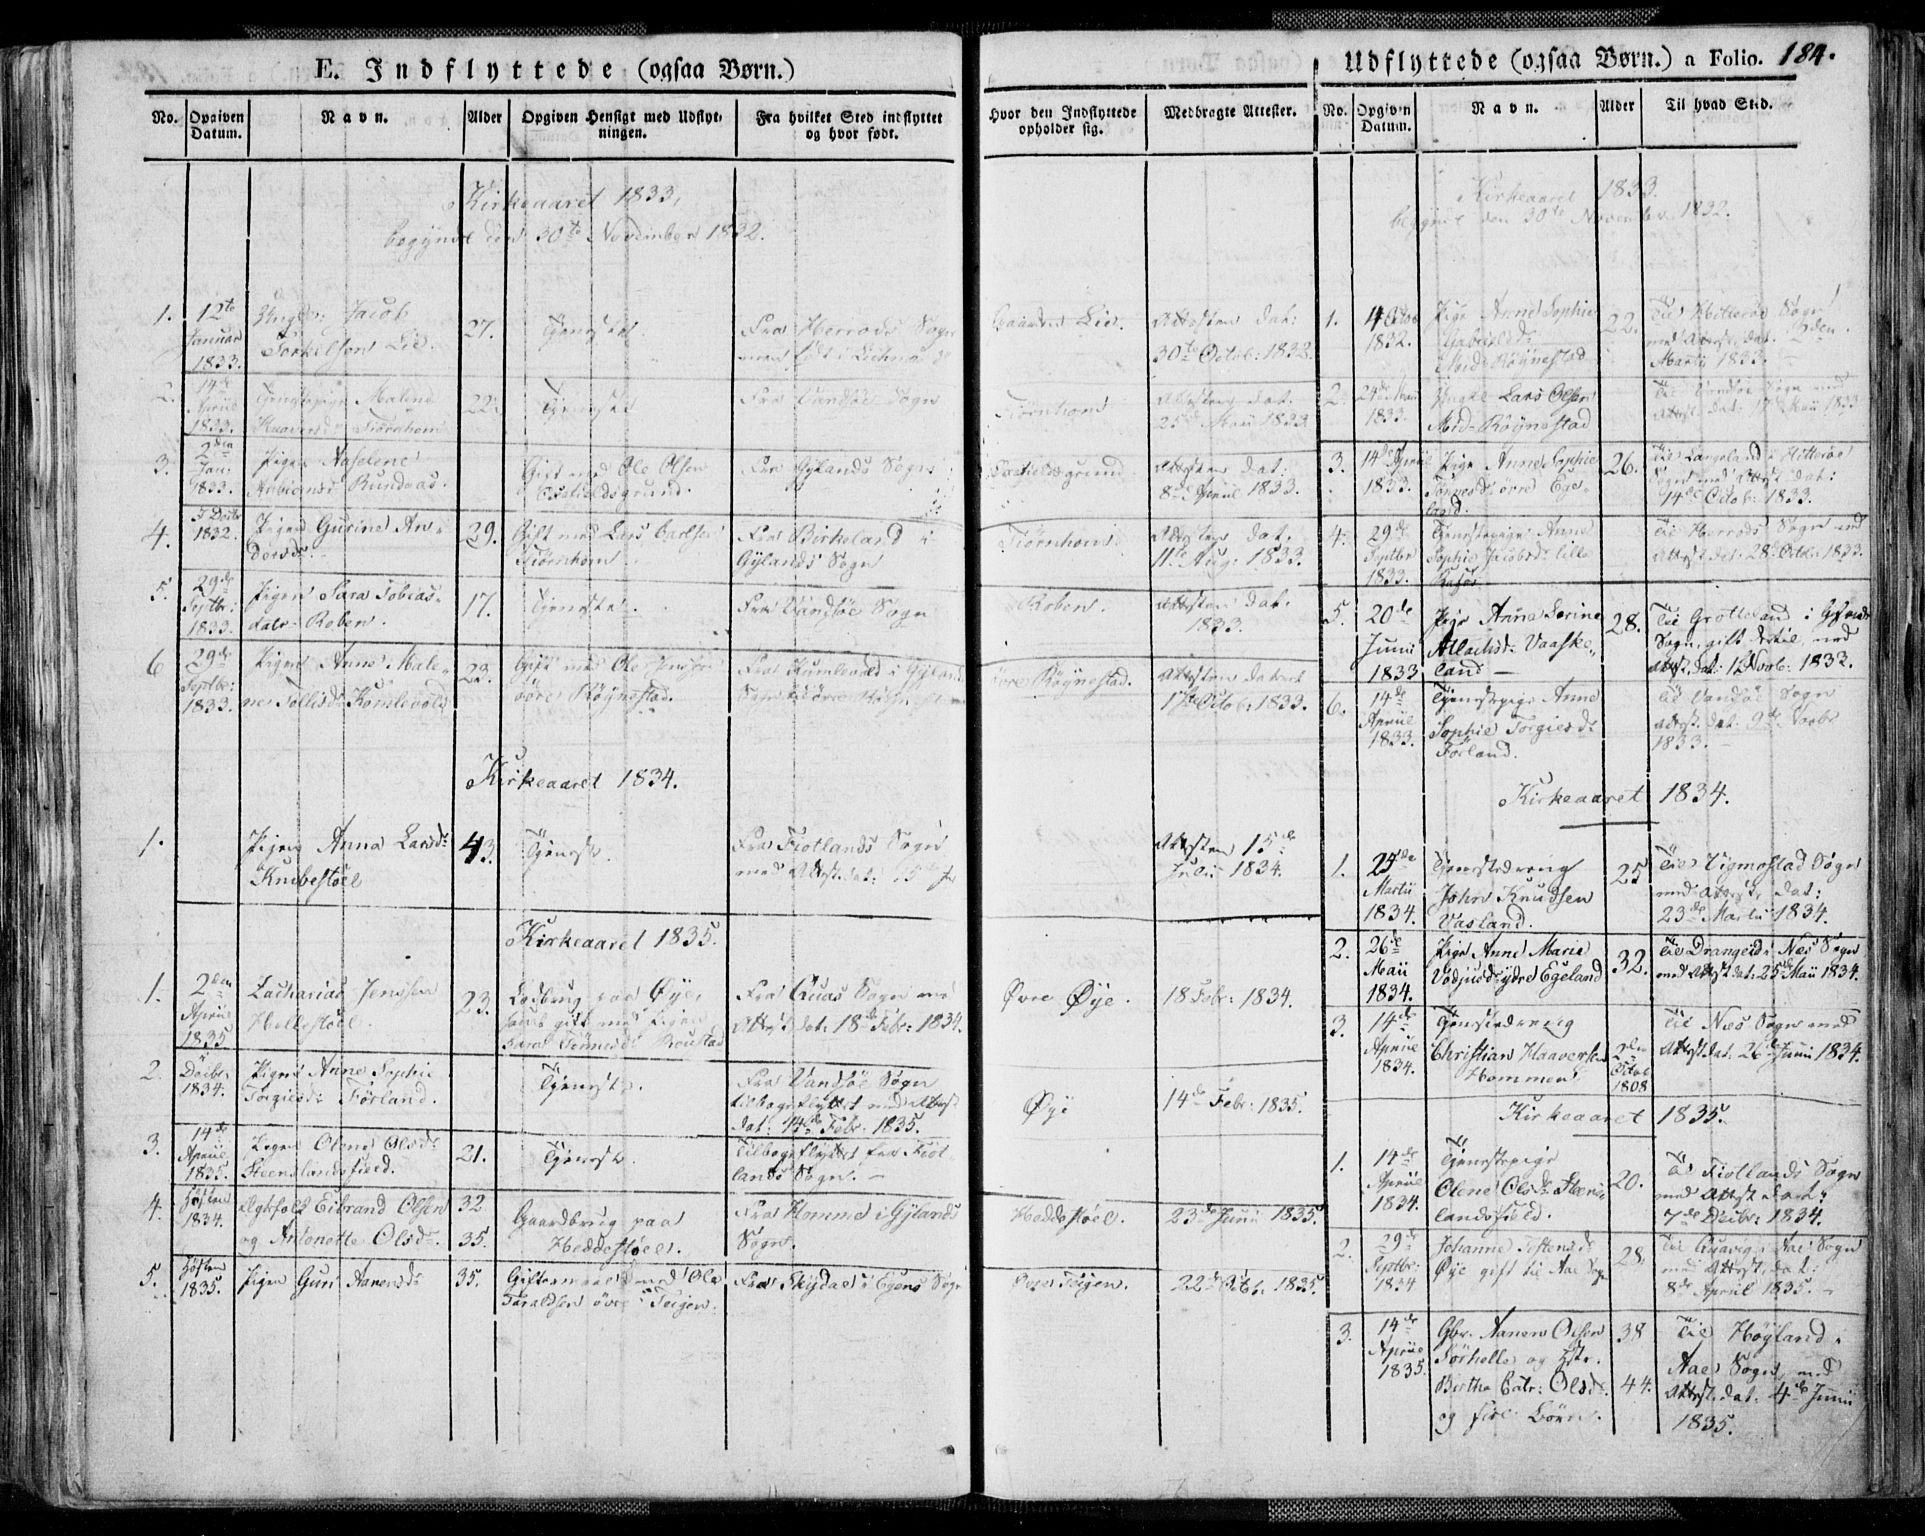 E. Indflyttede (ogsaa Børn.)
No. Opgiven Datum. Navn. Alder Opgiven Hensigt med Udflyt-ningen. Fra hvilket Sted indflyttet og hvor født.
Kirkeaaret 1833,
begyndt den 30te November 1832.
1. 12te Januar 1833. Jacob Torkilsen Lie. 27. Tjeneste Fra Herrods Sogn men født i
2. 14de April 1833. Tjenestepige Malene Tjørnhom 22. Tjeneste Fra Vandsøe Sogn
3. 2den Jan: 1833. Pigen Aaselene Rundvad Gift med Ole Olsen Fra Gylands Sogn
4. Decbr 1832. Pigen Gurine An-dersd: 29. Gift med Lars Carlsen Tjørnhom Fra Birkeland i Gylands Sogn
5. 29de Septbr: 1833. Pigen Sara Tobias-datr Roben. 17. Tjeneste. Fra Vandsøe Sogn
6 29de Septbr: 1833. Pigen Anne Male-ne Tollisd: Komlevold 23. Gift med Ole øvre Røynestad. Fra Kumlevold i Gylands
Kirkeaaret 1834.
1. Pigen Anna Larsd: Knibestøel 43. Tjeneste. Fra Fiotlands Sogn med Attest dat: 15de
Kirkeaaret 1835.
1. 2den April 1835 Zacharias Jensen Hellestøel. 23. Jordbrug paa Øye, gift med Pigen Sara Tønnesd: Fra Quas Sogn med Attest dat: 18de Febr: 1834.
2. Decbr. 1834. Pigen Anne Sophie Torgiesd: Førland. Tjeneste. Fra Vandsøe Sogn tilbageflyttet med Attest dat: 14de Febr: 1835.
3. 14de April 1835. Pigen Olene Olsd: Steenslandsfield. 21. Tjeneste. Tilbageflyttet fra Fiot-lands Sogn. —
4. Høsten 1834. Eibrand Olsen og Antonette Olsd:. 32 35. Gaardbrug paa Heddestøel. Fra Homme i Gylands Sogn.
5. Høsten 1835. Pigen Guri Aanensd: 35. Giftermaal med Ole Taraldsen øvre Teigen. Fra Skjdal i Egens Sogn
Hvor den Indflyttede opholder sig. Medbragte Attester.
Gaarden Lie. Attesten dat: 30te Octob: 1832.
Tjørnhom Attesten dat. 25de Maii 1833
Attesten dat: 8de April 1833.
Tjørnhom. Attesten dat. 11te Aug: 1833.
Roben. Attesten dat. 1833.
øvre Røynestad. Attesten datert 17de Octob: 1833.
Attesten 15de Julii 1834.
Øvre Øye. 18 Febr: 1834.
Øye 14de Febr: 1835.
Heddestøel. 23de Junii 1835.
Øvre Teigen. 22de Octob. 1835.
Udflyttede (ogsaa Børn.) a Folio. 184.
No. Opgiven Datum. Navn. Alder Til hvad Sted.
Kirkeaaret 1833.
begyndt den 30te November 1832.
1. 4 Octob 1832. Pige Anne Sophie Gabrielsd: Med-Røynestad 22. Til Hitterøe Sogn med Attest. dat. 2den Martii 1833.
2. 24de Maii 1833. Ungk: Lars Olsen Med-Røynestad Til Vandsøe Sogn med Attest. dat: 17de Maii 1833
3. 14de April 1833. Pige Anne Sophie Tønnesd: øvre Ege-land. 26. Til Langeland i Hitterøe Sogn med Attest dat: 14de Octob: 1833.
4. 29de Septbr 1833. Tjenestepige Anne Sophie Jacobsd: lille Til Herrods Sogn med Attest dat: 28de Octb: 1833.
5. 20de Junii 1833 Pige Anne Serine Atlachsd: Vaaske-land — 28. Til Grotteland i Gylands Sogn, gift dertil med Attest. dat: 12 Novb: 1832.
6. 14de April 1833. Tjenestepige Anne Sophie Torgiesd: Førland. Til Vandsøe Sogn Attest. dat: 9de Novbr 1833. —
Kirkeaaret 1834.
1. 25de Martii 1834. Tjenestedreng John Knudsen Vasland. 25 Til Vigmostad Sogn med Attest dat: 23de Martii 1834.
2. 26de Maii 1834. Pige Anne Marie ydre Egeland 32. Til Drangeid i Næs Sogn med Attest dat: 25de Maii 1834.
3. 14de April 1834. Tjenestedreng Christian Haaversen Hommen 2den Octob 1808 Til Næs Sogn med Attest dat. 26de Junii 1834.
Kirkeaaret 1835.
1. 14de April 1834. Tjenestepige Olene Olsd: Steens-landsfield. 20. Til Fiotlands Sogn med Attest dat: 7de Decbr: 1834.
2. 29de Septbr: 1834 Johanne Øye gift til Aae Sogn 28. Til Quavig i Aae Sogn med Attest. dat: 8de April 1835. —
3. 14de April 1835. Gbr. Aanen Olsen Sørhelle og Hstr. Birthe Catr: Olsd: og fire Børn. 38 44. Til Høyland i Aae Sogn med Attest. dat. 4de Junii 1835.